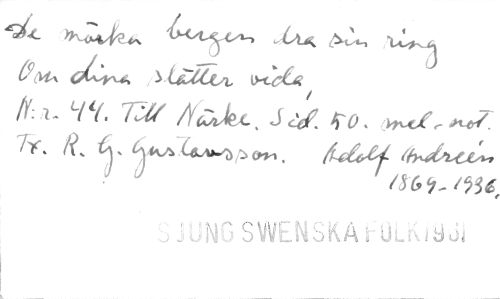 De mörka bergen dra sin ring
Om dina slätter vida,
N:r. 44. Till Närke. Sid. 50. mel-not.
Tx. R. G. Gustavsson. Adolf Andreén
1869-1936.
SJUNG SWENSKA FOLK 1931